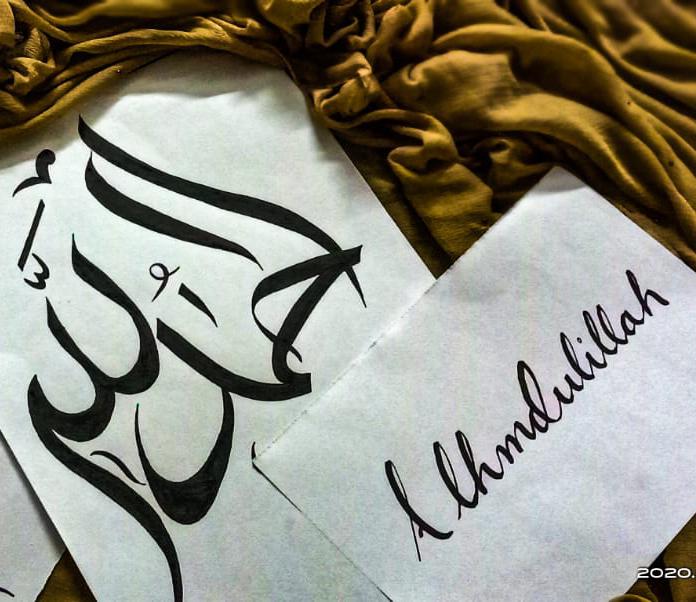 الحمد لله
Alhmdulillah
2020.